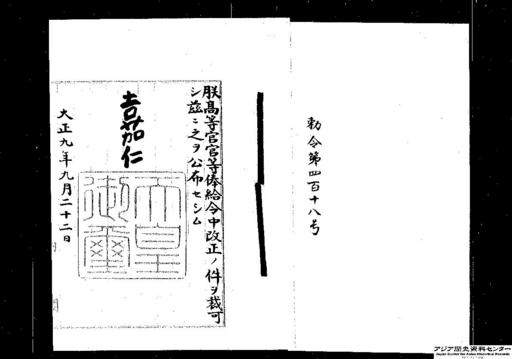 勅令第四百十八号
朕高等官官等俸給令中改正ノ件ヲ裁可
シ茲ニ之ヲ公布セシム
嘉仁
天皇
御璽
大正九年九月二十二日
アジア歴史資料センター
Japan Center for Asian Historical Records